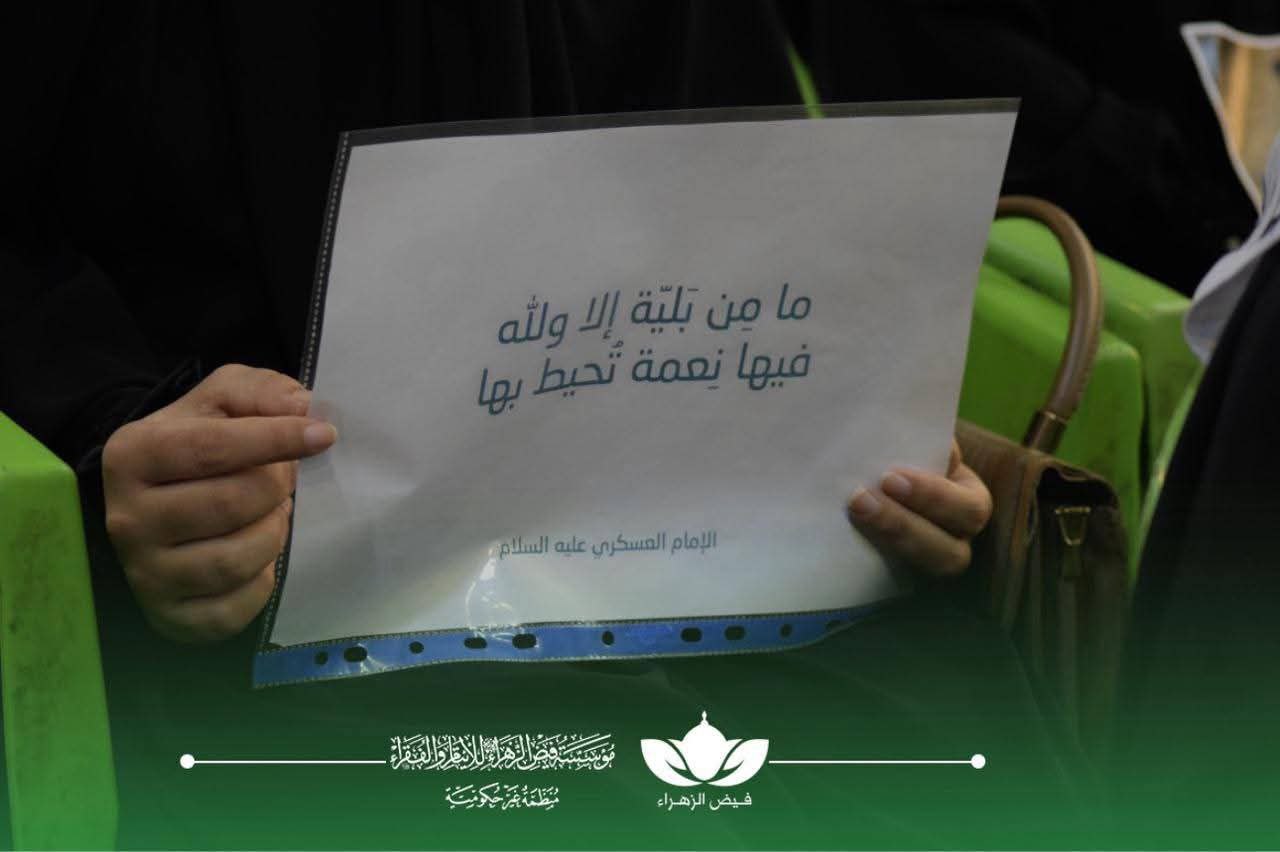 ما مِن بَليّة إلا ولله
فيها نِعمة تُحيط بها
الإمام العسكري عليه السلام
مؤسسة فيض الزهراء للأيتام والفقراء
منظمة غير حكومية
فيض الزهراء